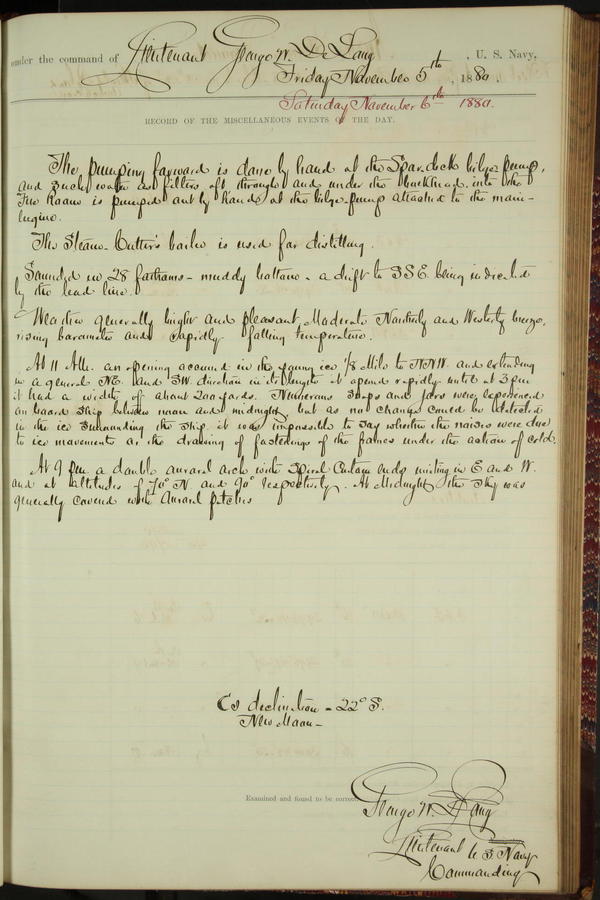 under the command of Lieutenant George W. De Long, U. S. Navy,
Friday November 5th, 1880.
Saturday November 6th 1880.
RECORD OF THE MISCELLANEOUS EVENTS OF THE DAY.
The pumping forward is done by hand at the Spar-deck bilge pump,
and such water as filters aft through and under the bulkhead into the
Fire Room is pumped out by hand, at the bilge-pump attached to the main-
Engine.
The Steam-Cutter's boiler is used for distilling.
Sounded in 28 fathoms - muddy bottom - a drift to SSE. being indicated
by the lead line.
Weather generally bright and pleasant, Moderate Northerly and Westerly breeze,
rising barometer and rapidly falling temperature.
At 11 AM. an opening occurred in the young ice 1/8 Mile to NNW. and extending
in a general NE. and SW. direction in its length it opened rapidly until at 3 pm
it had a width of about 200 yards. Numerous snaps and jars were experienced
on board ship between noon and midnight, but as no change could be detected
in the ice surrounding the ship, it was impossible to say whether the noises were due
to ice movements or the drawing of fastenings of the frames under the action of cold.
At 9 pm. a double auroral arch with Spiral Curtain ends uniting in E and W.
and at altitudes of 70° N. and 90° respectively. At Midnight the sky was
generally covered with Auroral patches
☾s declination - 22° S.
New Moon -
Examined and found to be correct.
George W. De Long
Lieutenant U. S. Navy
Commanding